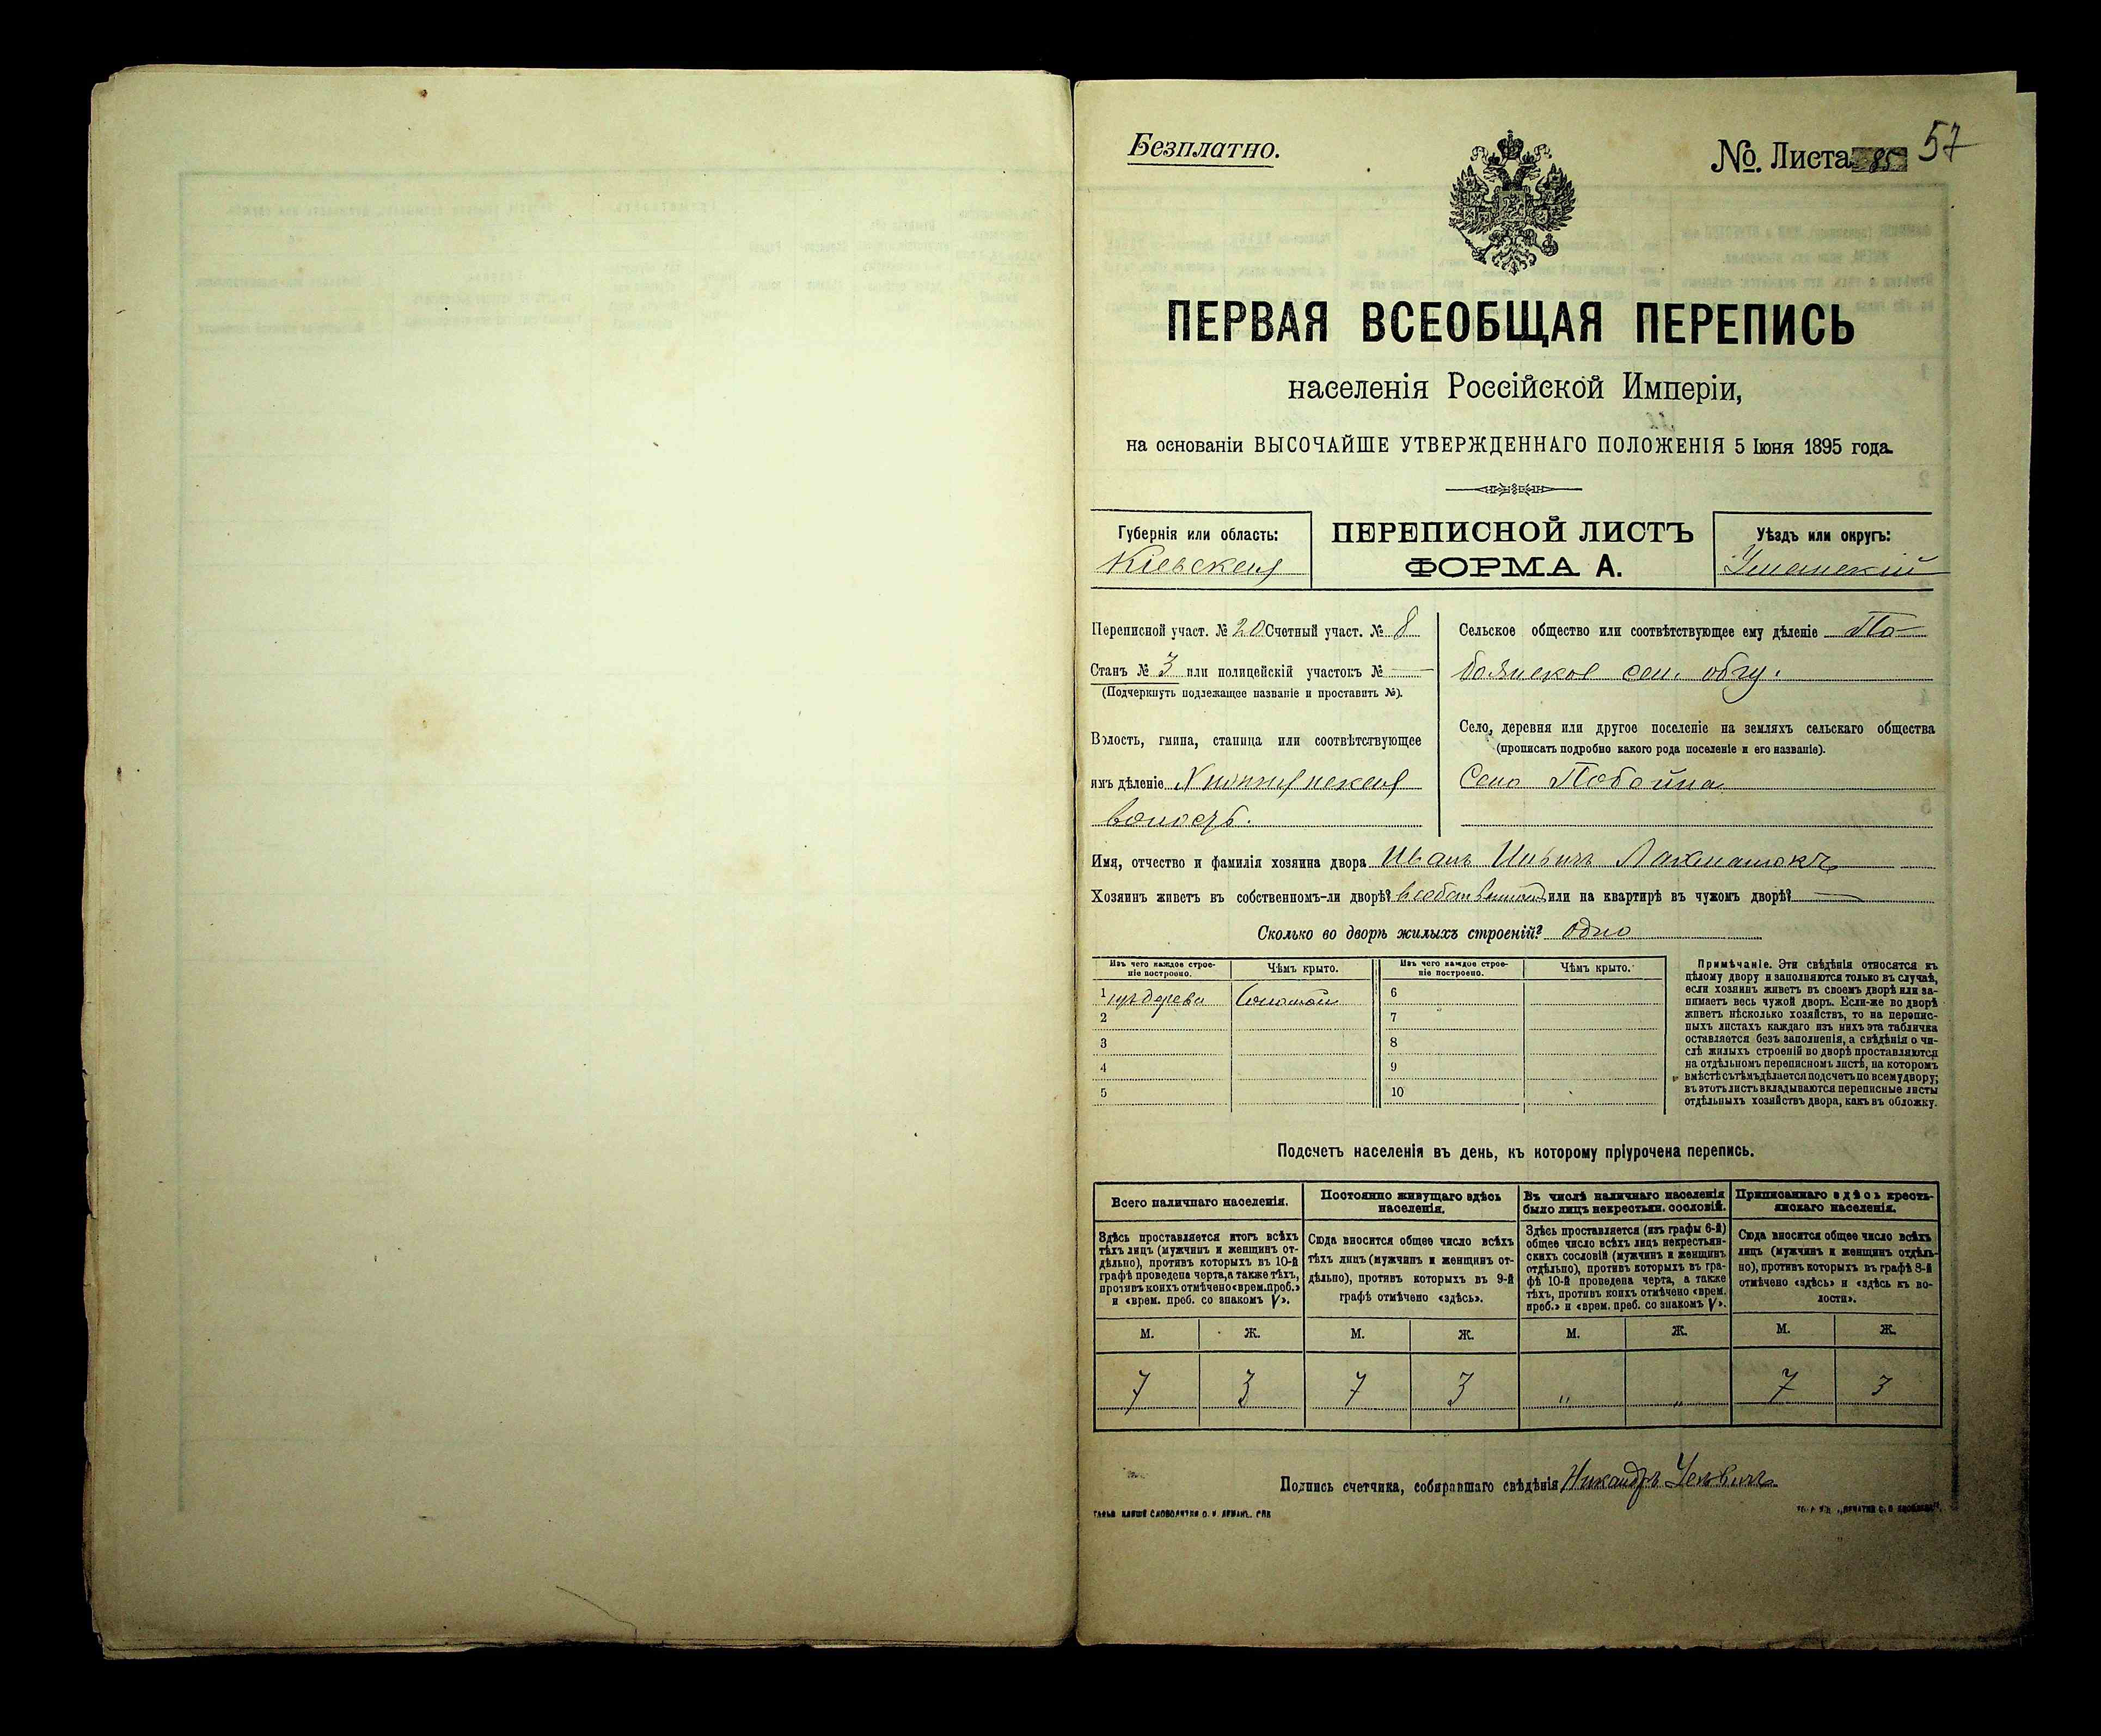 Безплатно.
№. Листа 85 57
ПЕРВАЯ ВСЕОБЩАЯ ПЕРЕПИСЬ
населенія Россійской Имперіи,
на основаніи ВЫСОЧАЙШЕ УТВЕРЖДЕННАГО ПОЛОЖЕНІЯ 5 Іюня 1895 года.
Губернія или область:
Кіевская
ПЕРЕПИСНОЙ ЛИСТЪ
ФОРМА А.
Уѣздъ или округъ:
Уманскій
Переписной участ. № 20 Счетный участ. № 8
Станъ № 3 или полицейскій участокъ №
(Подчеркнуть подлежащее названіе и проставить №).
Волость, гмина, станица или соотвѣтствующее
имъ дѣленіе
волость.
Сельское общество или соотвѣтствующее ему дѣленіе По-
бойнское сел. общ.
Село, деревня или другое поселеніе на земляхъ сельскаго общества
(прописать подробно какого рода поселеніе и его названіе).
Село Побойна
Имя, отчество и фамилія хозяина двора Иванъ
Хозяинъ живетъ въ собственномъ-ли дворѣ? или на квартирѣ въ чужомъ дворѣ?
Сколько во дворѣ жилыхъ строеній? одно
Изъ чего каждое строе-
ніе построено.
Чѣмъ крыто.
Изъ чего каждое строе-
ніе построено.
Чѣмъ крыто.
1 изъ дерева Соломой 6
2 7
3 8
4 9
5 10
Примѣчаніе. Эти свѣдѣнія относятся къ
цѣлому двору и заполняются только въ случаѣ,
если хозяинъ живетъ въ своемъ дворѣ или за-
нимаетъ весь чужой дворъ. Если-же во дворѣ
живетъ нѣсколько хозяйствъ, то на перепис-
ныхъ листахъ каждаго изъ нихъ эта табличка
оставляется безъ заполненія, а свѣдѣнія о чи-
слѣ жилыхъ строеній во дворѣ проставляются
на отдѣльномъ переписномъ листѣ, на которомъ
вмѣстѣ съ тѣмъ дѣлается подсчетъ по всему двору;
въ этотъ листъ вкладываются переписные листы
отдѣльныхъ хозяйствъ двора, какъ въ обложку.
Подсчетъ населенія въ день, къ которому пріурочена перепись.
Всего наличнаго населенія.
Постоянно живущаго здѣсь
населенія.
Въ числѣ наличнаго населенія
было лицъ некрестьян. сословій.
Приписаннаго здѣсь кресть-
янскаго населенія.
Здѣсь проставляется итогъ всѣхъ
тѣхъ лицъ (мужчинъ и женщинъ от-
дѣльно), противъ которыхъ въ 10-й
графѣ проведена черта, а также тѣхъ,
противъ коихъ отмѣчено «врем. преб.»
и «врем. преб. со знакомъ V».
Сюда вносится общее число всѣхъ
тѣхъ лицъ (мужчинъ и женщинъ от-
дѣльно), противъ которыхъ въ 9-й
графѣ отмѣчено «здѣсь».
Здѣсь проставляется (изъ графы 6-й)
общее число всѣхъ лицъ некрестьян-
скихъ сословій (мужчинъ и женщинъ
отдѣльно), противъ которыхъ въ гра-
фѣ 10-й проведена черта, а также
тѣхъ, противъ коихъ отмѣчено «врем.
преб.» и «врем. преб. со знакомъ V».
Сюда вносится общее число всѣхъ
лицъ (мужчинъ и женщинъ отдѣль-
но), противъ которыхъ въ графѣ 8-й
отмѣчено «здѣсь» и «здѣсь къ во-
лости».
М. Ж. М. Ж. М. Ж. М. Ж.
7 3 7 3 " " 7 3
Подпись счетчика, собиравшаго свѣдѣнія Никандръ